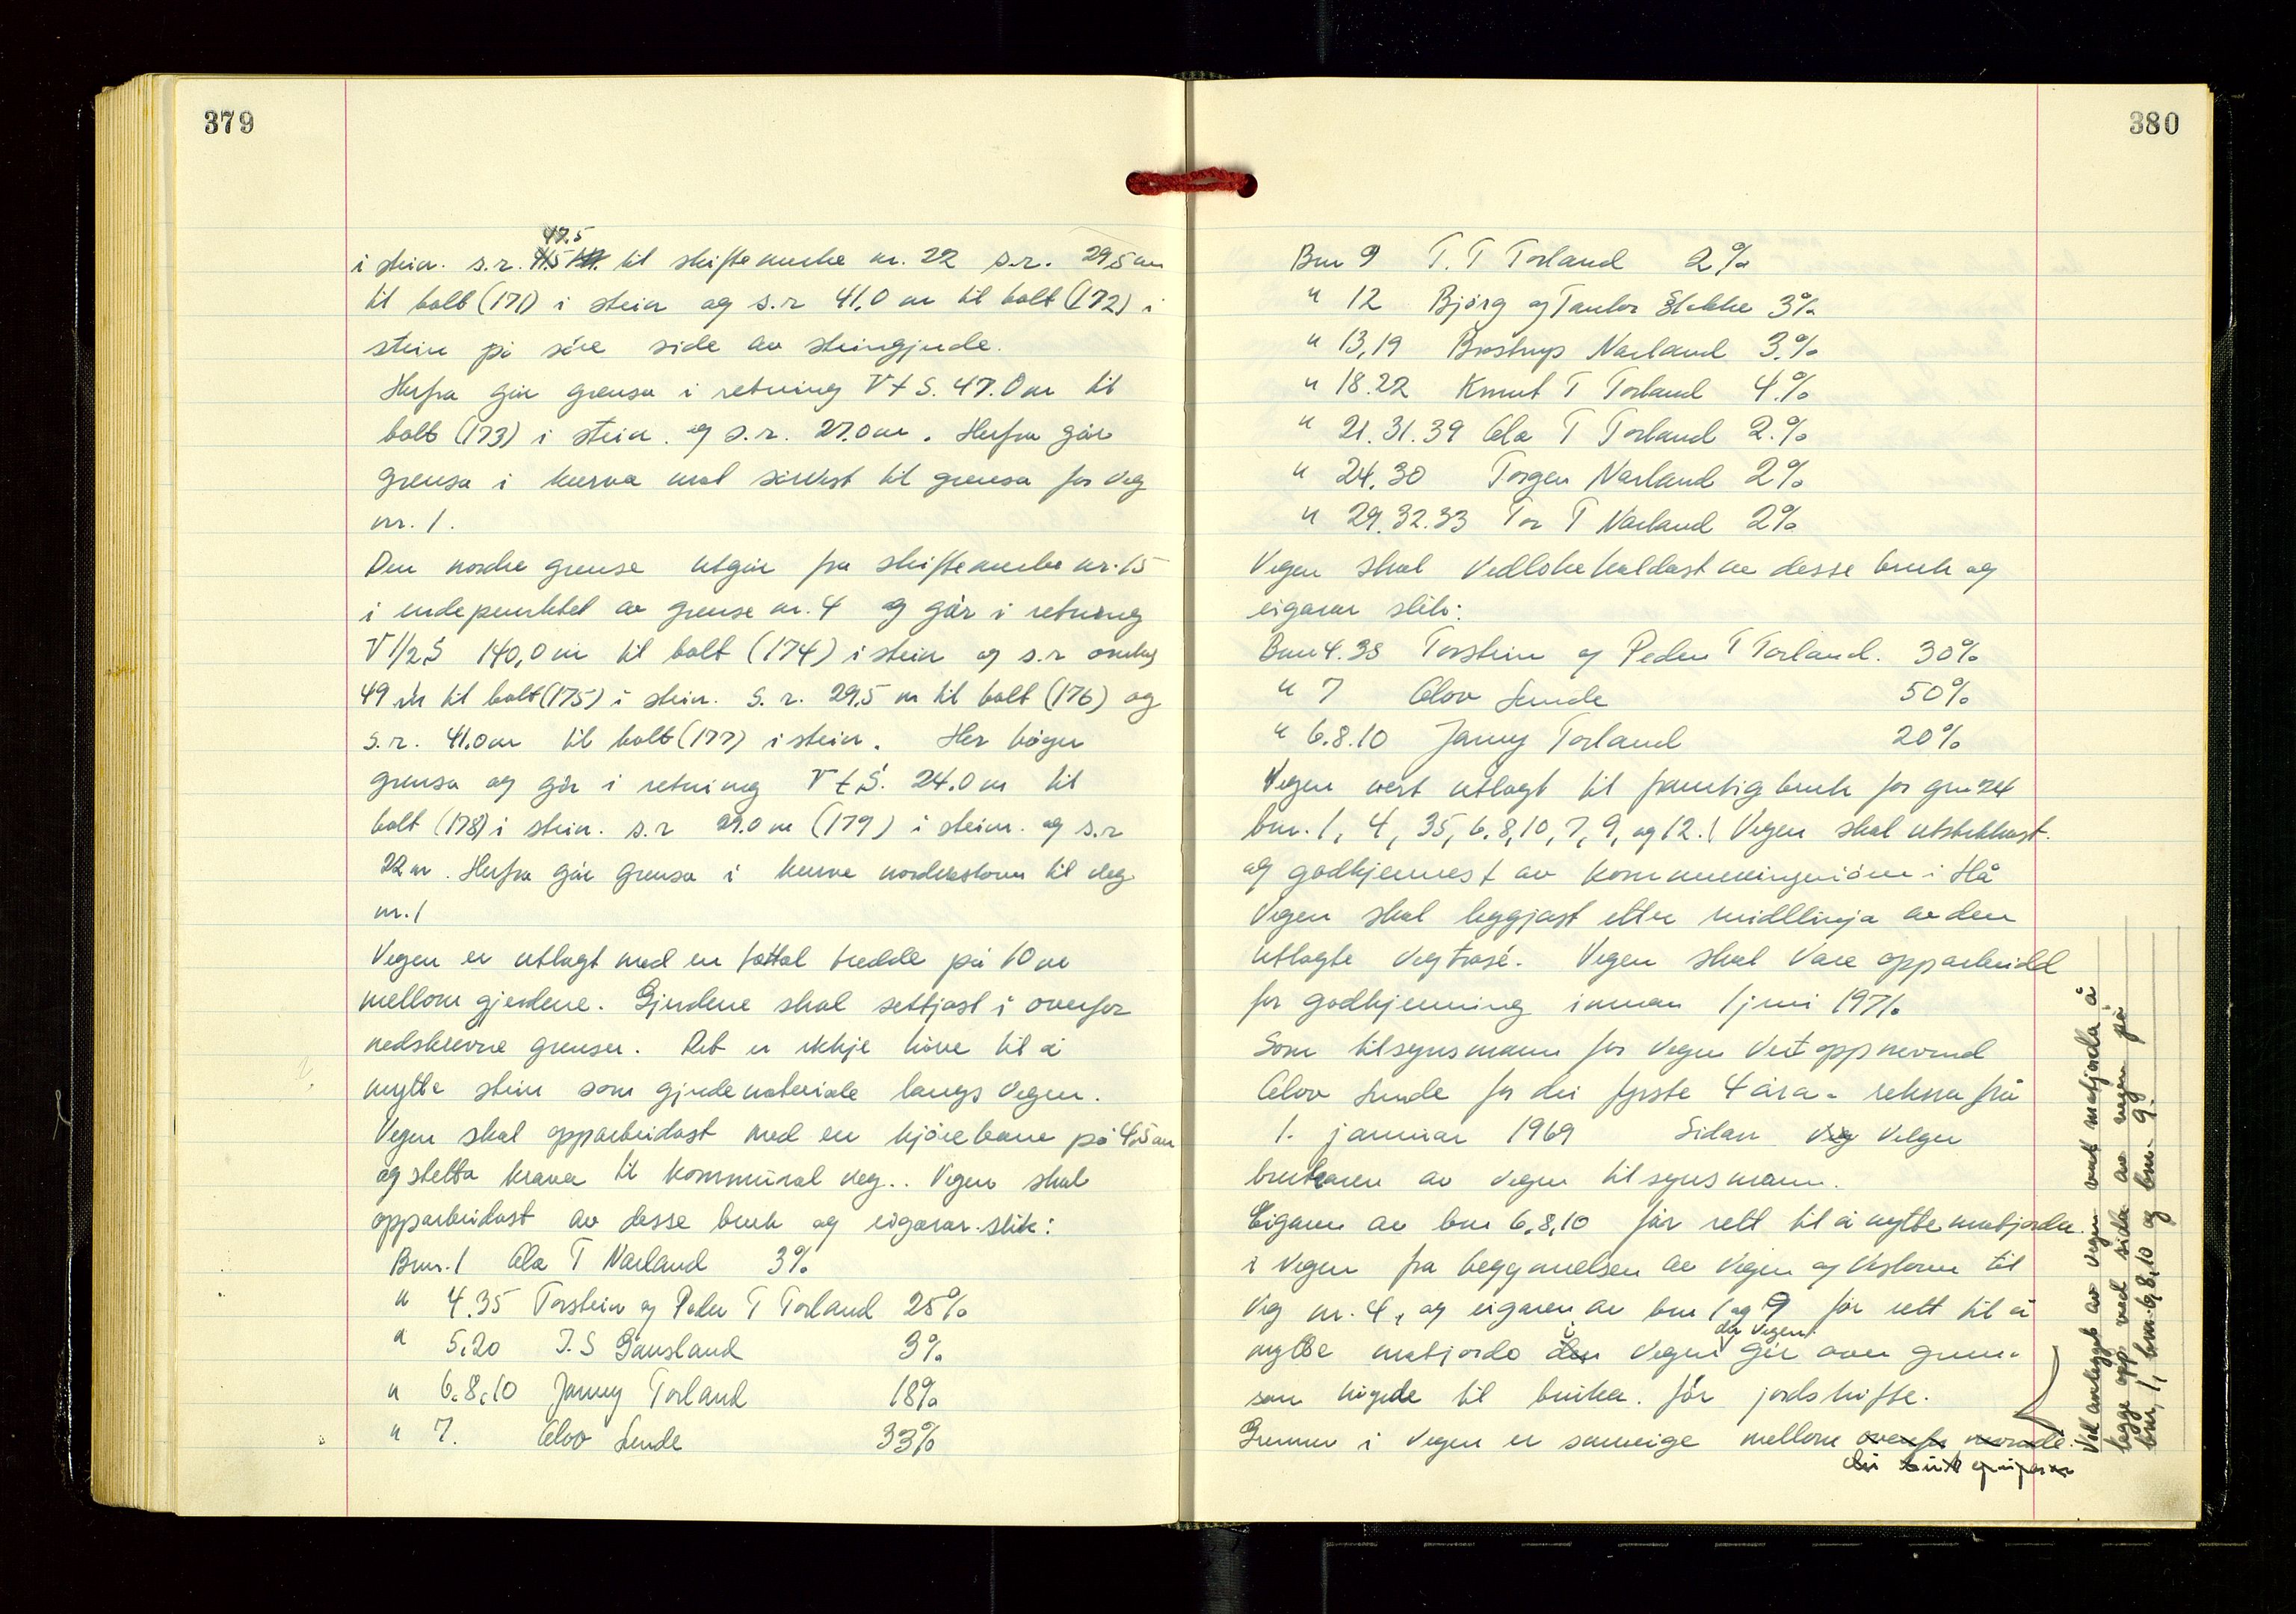 379
47.5
i stein. s.r. til skiftemerke nr. 22 s.r. 29,5 m
til bolt (171) i stein og s.r 41,0 m til bolt (172) i
stein på söre side av steingjerde.
Herfra går grensa i retning V t S. 47.0 m til
bolt (173) i stein. og s.r. 27.0 m. Herfra går
grensa i kurva mot sörvest til grensa for veg
nr. 1.
Den nordre grense utgår fra skiftemerke nr. 15
i endepunktet av grense nr. 4 og går i retning
V 1/2 S 140,0 m til bolt (174) i stein og s.r omlag
49 m til bolt (175) i stein. S. r. 29,5 m til bolt (176) og
s.r. 41.0 m til bolt (177) i stein. Her böyer
grensa og går i retning V t S. 24.0 m til
bolt (178) i stein. s.r 29.0 m (179) i stein. og s.r
22 m. Herfra går grensa i kurve nordvestover til veg
nr. 1
Vegen er utlagt med en total bredde på 10 m
mellom gjerdene. Gjerdene skal settjast i overfor
nedskrevne grenser. Det er ikkje höve til å
nytte stein som gjerdemateriale langs vegen.
Vegen skal opparbeidast med en kjörebane på 4,5 m
og stetta krava til kommunal veg.. Vegen skal
opparbeidast av desse bruk og eigarar slik:
Bnr. 1 Ola T Narland 3%
" 4.35 Torstein og Peder T Torland 25%
" 5.20 T. S Gausland 3%
" 6.8.10 Janny Torland 18%
" 7. Olov Lende 33%
380
Bnr 9 T. T Torland 2%
" 12 Björg og Stokke 3%
" 13,19 Brostrup Narland 3.%
" 18.22 Knut T Torland 4.%
" 21.31.39 Ola T Torland 2.%
" 24.30 Torger Narland 2%
" 29.32.33 Tor T Narland 2%
Vegen skal vedlikehaldast av desse bruk og
eigarar slik:
Bnr 4.35 Torstein og Peder T Torland. 30%
" 7 Olov Lende 50%
" 6.8.10 Janny Torland 20%
Vegen vert utlagt til framtig bruk for gnr 24
bnr. 1, 4, 35, 6, 8, 10, 7, 9, og 12. Vegen skal utstikkast.
og godkjennest av kommuneingeniören i Hå
Vegen skal leggjast etter midtlinja av den
utlagte vegtrasé. Vegen skal vare opparbeidd
for godkjenning innan 1 juni 1971.
Som tilsynsmann for vegen vert oppnevnd
Olov Lende for dei fyrste 4 åra - rekna frå
1. januar 1969 Sidan velger
brukaren av vegen tilsynsmann.
Eigaren av bnr 6,8,10 får rett til å nytte matjorda
i vegen fra begynnelsen av vegen og vestover til
veg nr. 4, og eigaren av bnr 1 og 9 får rett til å
i der vegen
nytte matjorda den vegen går over grunn
som högde til bruka för jordskifte.
Grunnen i vegen er sameige mellom overfor nevnde.
dei bruk og eigarar
Ved anlegget av vegen vert matjorda å
legge opp ved sida av vegen på
bnr. 1, bnr. 6,8,10 og bnr. 9.